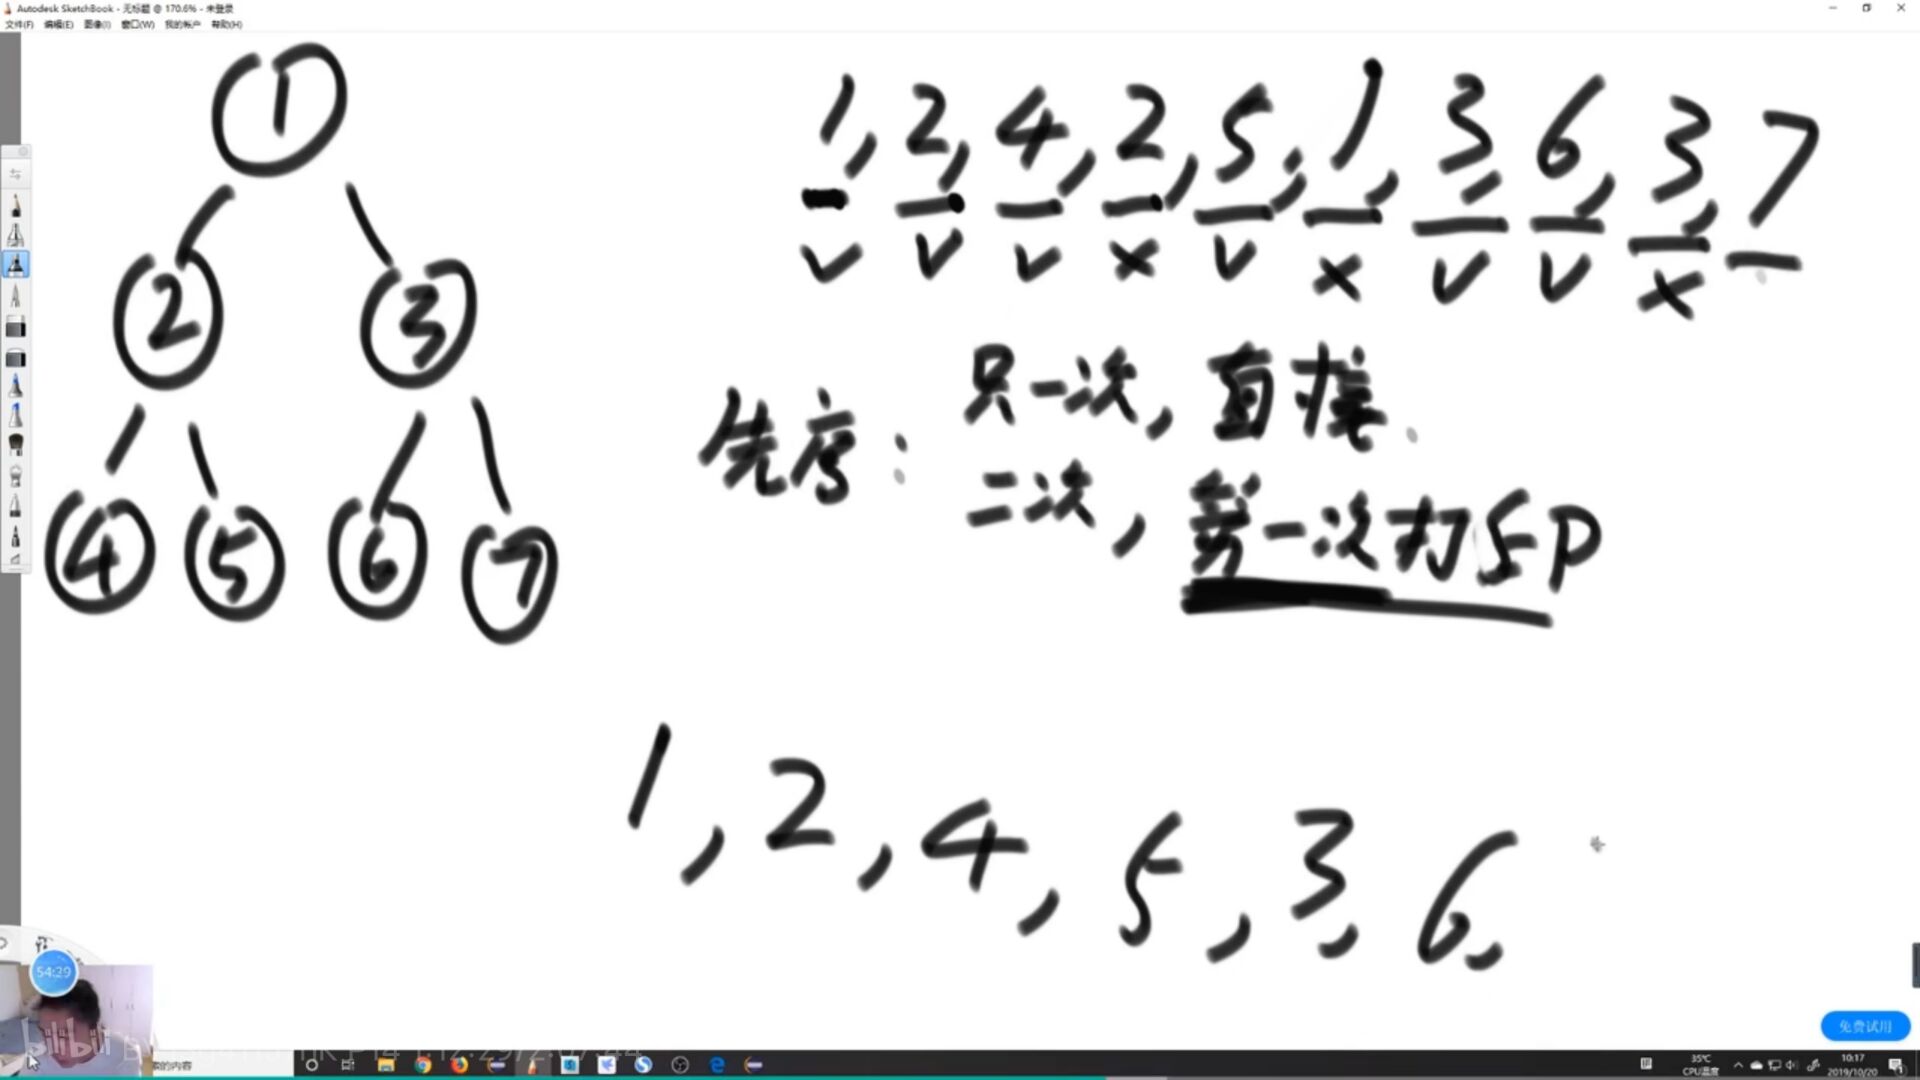 Autodesk SketchBook - 无标题 @ 170.6% - 未登录
文件(F) 编辑(E) 图像(I) 窗口(W) 我的帐户 帮助(H)
1
2 3
4 5 6 7
1, 2, 4, 2, 5, 1, 3, 6, 3, 7
v v v x v x v v x
先序: 只一次, 直接.
二次, 第一次打印
1, 2, 4, 5, 3, 6,
54:29
免费试用
bilibili
索的内容
35℃
CPU温度
10:17
2019/10/20